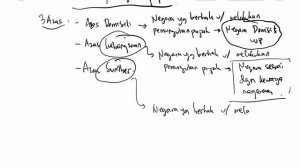 3 Azas : - Azas Domisili → Negara yg berhak u/ melakukan
pemungutan pajak → Negara Domisili
WP
- Azas kebangsaan → Negara yg berhak u/ melakukan
pemungutan pajak → Negara sesuai
dgn kewarga
negaraan
- Azas Sumber → Negara yg berhak u/ mela